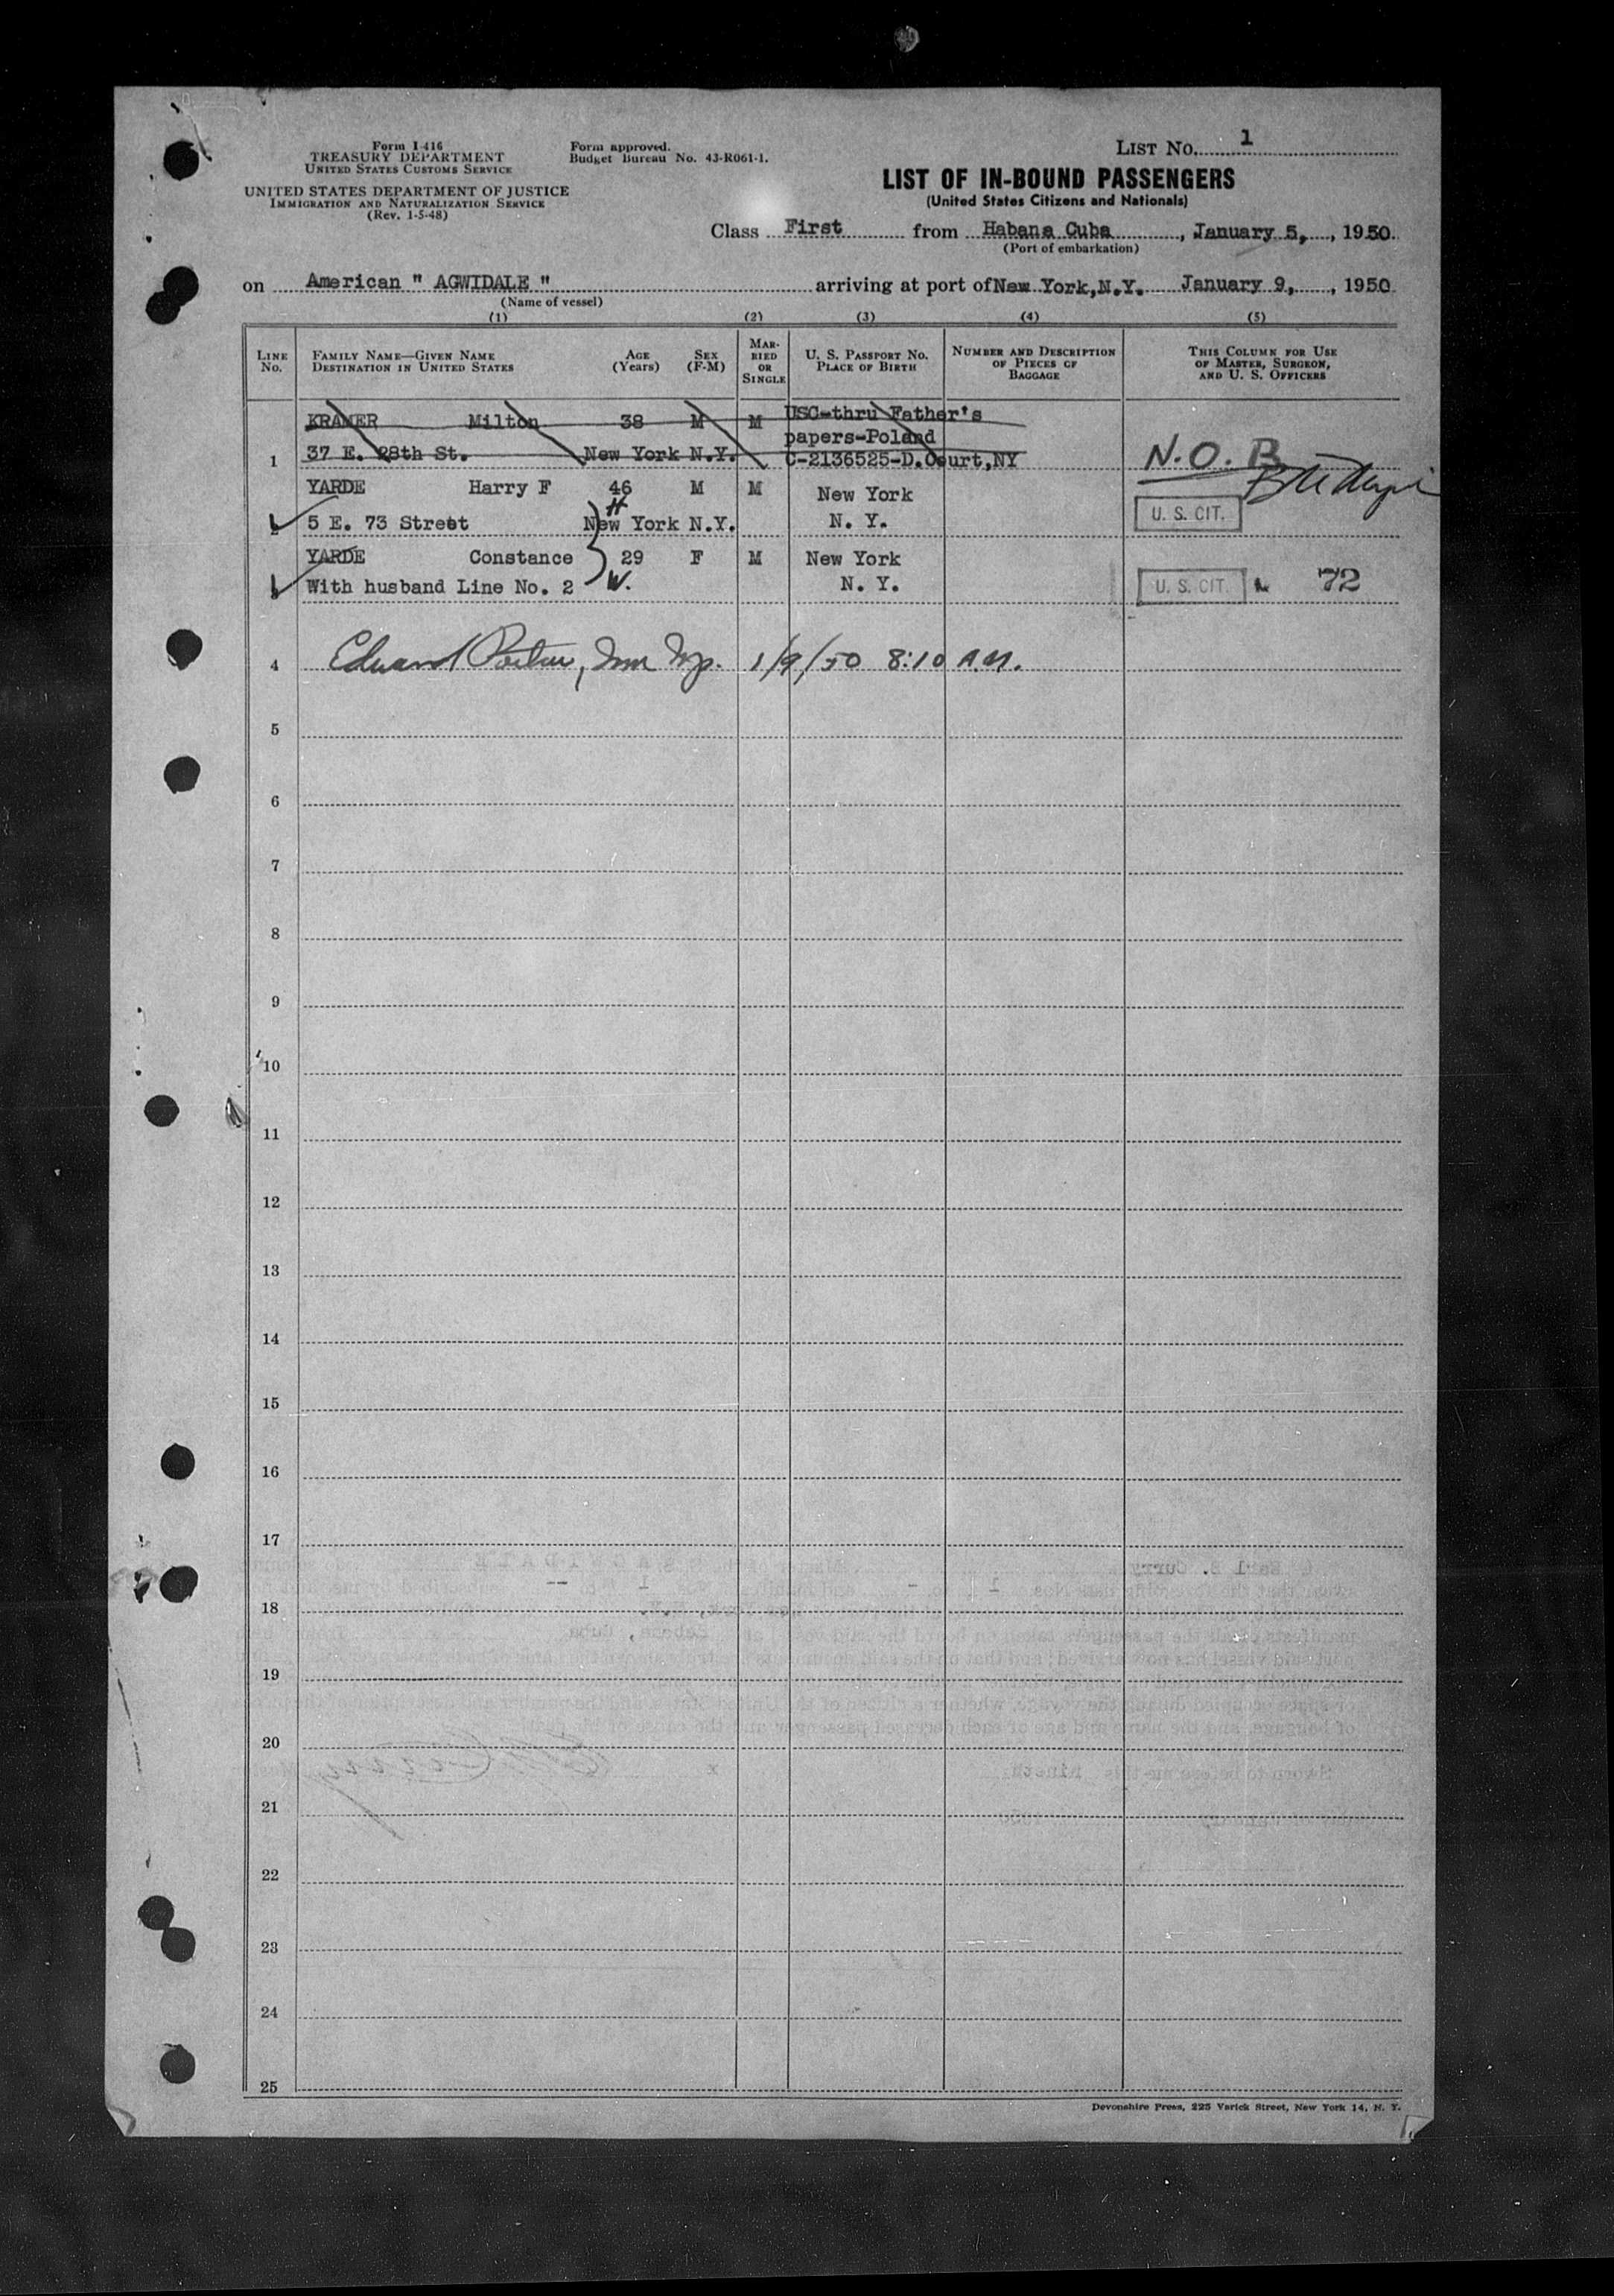 Form I-416
TREASURY DEPARTMENT
UNITED STATES CUSTOMS SERVICE
UNITED STATES DEPARTMENT OF JUSTICE
IMMIGRATION AND NATURALIZATION SERVICE
(Rev. 1-5-48)
Form approved.
Budget Bureau No. 43-R061-1.
LIST No. 1
LIST OF IN-BOUND PASSENGERS
(United States Citizens and Nationals)
Class First from Habana Cuba, January 5, 1950.
(Port of embarkation)
on American " AGWIDALE " arriving at port of New York, N.Y. January 9, 1950
(Name of vessel)
(1) (2) (3) (4) (5)
LINE No.
FAMILY NAME—GIVEN NAME
DESTINATION IN UNITED STATES
AGE (Years)
SEX (F-M)
MARRIED OR SINGLE
U. S. PASSPORT NO.
PLACE OF BIRTH
NUMBER AND DESCRIPTION OF PIECES OF BAGGAGE
THIS COLUMN FOR USE OF MASTER, SURGEON, AND U. S. OFFICERS
KRAMER Milton 38 M M USC-thru Father's
papers-Poland
1 37 E. 28th St. New York N.Y. C-2136525-D.Court,NY N.O.B.
YARDE Harry F 46 M M New York
H
2 5 E. 73 Street New York N.Y. N. Y. U. S. CIT.
YARDE Constance 29 F M New York
3 With husband Line No. 2 W. N. Y. U. S. CIT. 72
4 Edward 1/9/50 8:10 A.M.
5
6
7
8
9
10
11
12
13
14
15
16
17
18
19
20
21
22
23
24
25
Devonshire Press, 225 Varick Street, New York 14, N. Y.